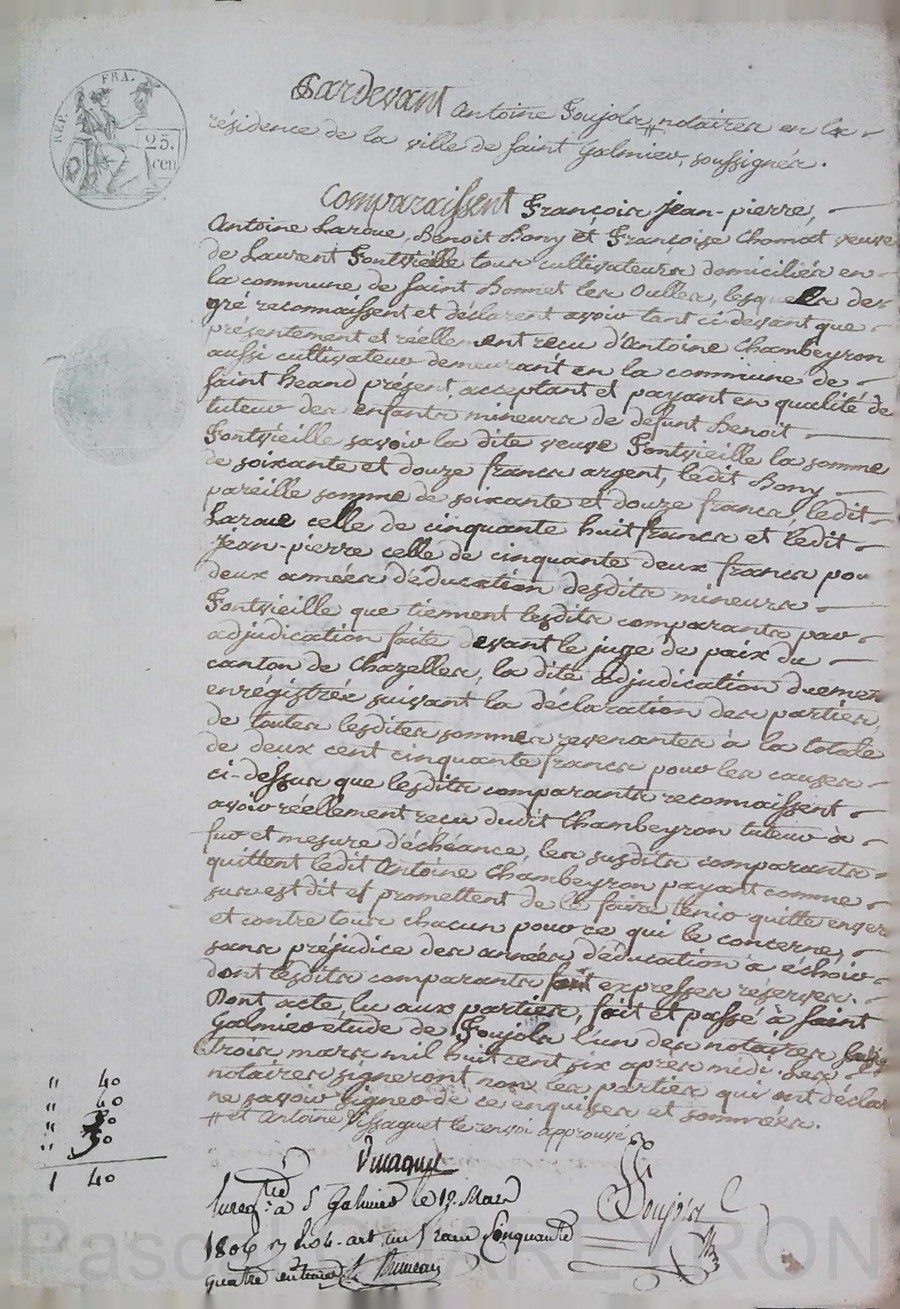 REP. FRA.
25.
cen
Pardevant Antoine Soujols # notaires en la
résidence de la ville de Saint Galmier, soussignés.
Comparaissent François jean-pierre,
Antoine Laroue, Benoit Bony et Françoise Chomat veuve
de Laurent Fontvieille tous cultivateurs domiciliés en
la commune de Saint Bonnet les Oulles, lesquels de
gré reconnaissent et déclarent avoir tant ci-devant que
présentement et réellement reçu d'Antoine Chambeyron
aussi cultivateur demeurant en la commune de
Saint heand présent, acceptant et payant en qualité de
tuteur des enfants mineurs de défunt Benoit
Fontvieille savoir la dite veuve Fontvieille la somme
de soixante et douze francs argent, ledit Bony
pareille somme de soixante et douze francs, ledit
Laroue celle de cinquante huit francs et ledit
jean-pierre celle de cinquante deux francs pou
deux années d'éducation desdits mineurs
Fontvieille que tiennent lesdits comparants par
adjudication faite devant le juge de paix du
canton de Chazelles, la dite adjudication duemen
enrégistrée suivant la déclaration des parties,
de toutes lesdites sommes revenantes à la totale
de deux cent cinquante francs pour les causes
ci-dessus que lesdits comparants reconnaissent
avoir réellement reçu dudit Chambeyron tuteur à
fur et mesure d'échéance, les susdits comparants
quittent ledit Antoine Chambeyron payant comme
sus est dit et promettent de le faire tenir quitte envers
et contre tous chacun pour ce qui le concerne,
sans préjudice des années d'éducation à échoir
dont lesdits comparants font expresses réserves.
Dont acte, lu aux parties, fait et passé à Saint
Galmier étude de Soujols l'un des notaires
trois mars mil huit cent six après midi. Les
notaires signeront non les parties qui ont déclar
ne savoir signer de ce enquises et sommées.
# et Antoine Vissaguet le renvoi approuvé
" 40
" 40
" 30
" 30
1 40
Soujols
Enreg.tré à S.t Galmier le 12. Mars
1806 art. un franc Cinquante
quatre centimes
Pascal CHAREYRON